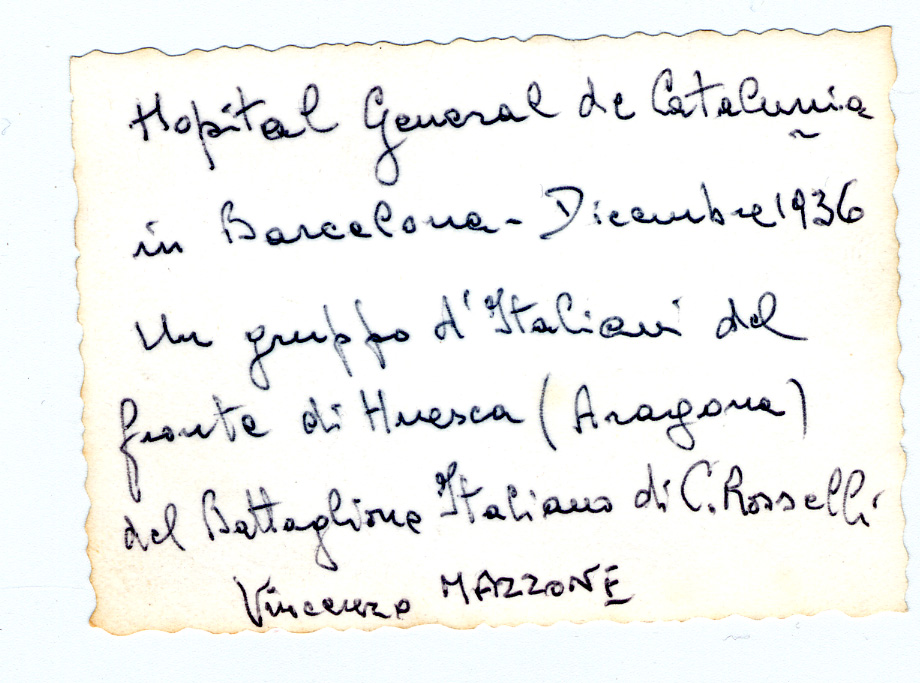 Hopital General de Catalunia
in Barcelona - Dicembre 1936
Un gruppo d'Italiani del
fronte di Huesca (Aragona)
del Battaglione Italiano di C. Rosselli
Vincenzo MAZZONE